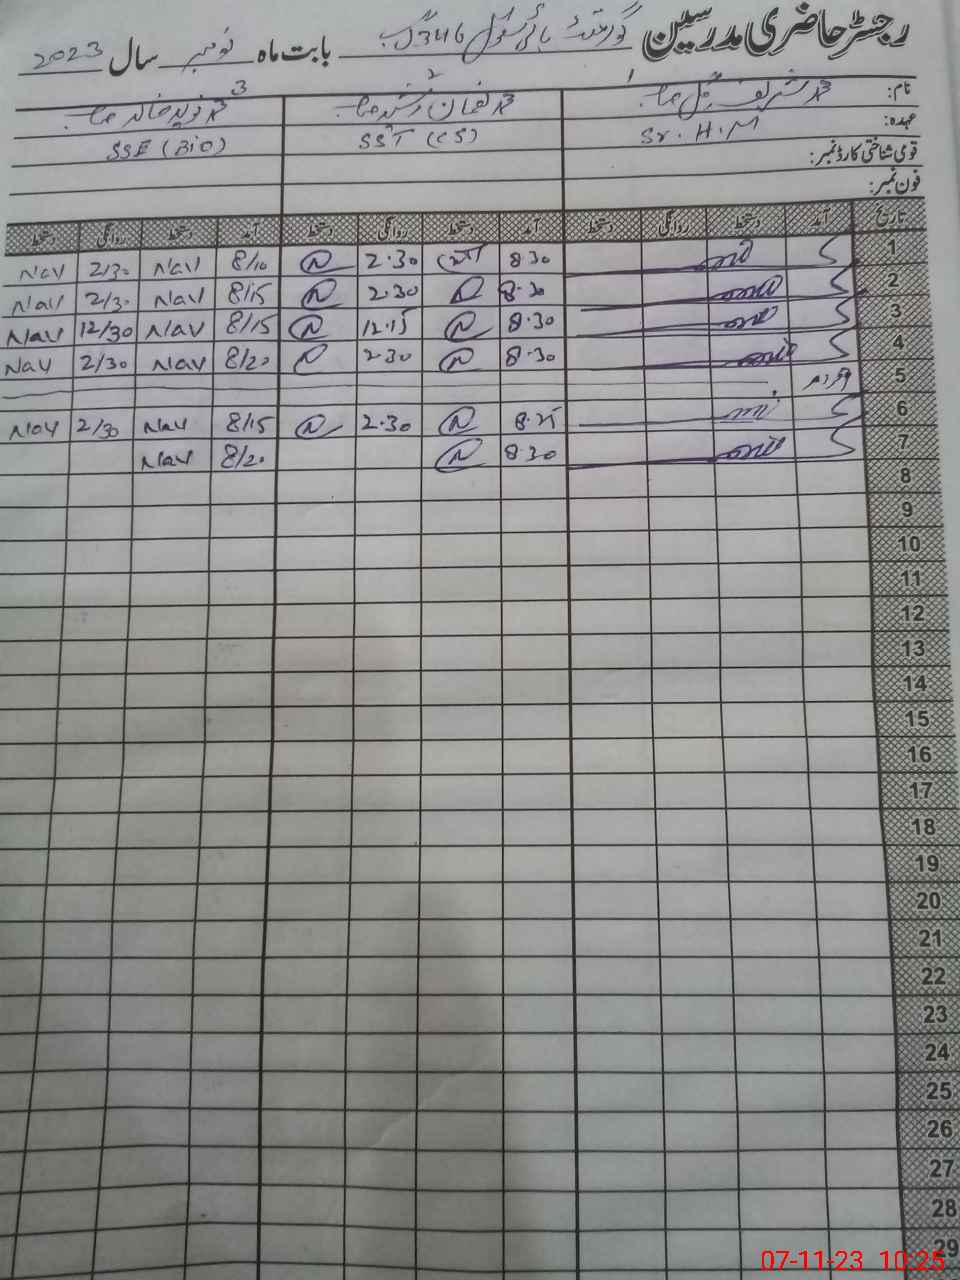 رجسٹر حاضری مدرسین گورنمنٹ ہائی سکول 346 گ ب بابت ماہ نومبر سال 2023
نام: 1 محمد شریف گل صاحب 2 محمد نعمان رشید صاحب 3 محمد نوید خالد صاحب
عہدہ: Sr. H. M SST (CS) SSE (Bio)
قومی شناختی کارڈ نمبر:
فون نمبر:
تاریخ آمد دستخط روانگی دستخط آمد دستخط روانگی دستخط آمد دستخط روانگی دستخط
1 8.30 2.30 8/10 Nav 2/30 Nav
2 8.30 2.30 8/15 Nav 2/30 Nav
3 8.30 12.15 8/15 Nav 12/30 Nav
4 8.30 2.30 8/20 Nav 2/30 Nav
5
6 8.25 2.30 8/15 Nav 2/30 Nav
7 8.30 8/20 Nav
8
9
10
11
12
13
14
15
16
17
18
19
20
21
22
23
24
25
26
27
28
29
07-11-23 10:25